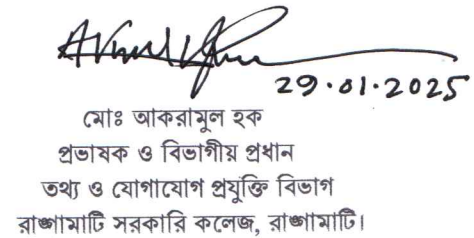 29.01.2025
মোঃ আকরামুল হক
প্রভাষক ও বিভাগীয় প্রধান
তথ্য ও যোগাযোগ প্রযুক্তি বিভাগ
রাঙ্গামাটি সরকারি কলেজ, রাঙ্গামাটি।